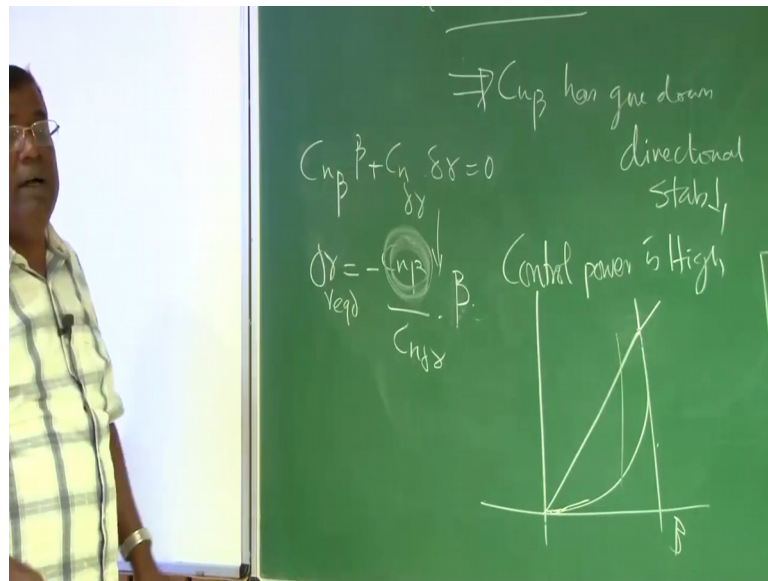 ⇒ Cnβ has gone down
directional
stab↓
Cnβ β + Cnδr δr = 0
δr reqd = - Cnβ / Cnδr . β.
Control power is High
β